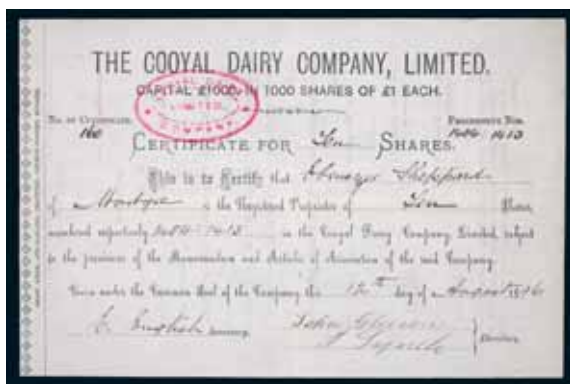 THE COOYAL DAIRY COMPANY, LIMITED.
CAPITAL £1000, IN 1000 SHARES OF £1 EACH.
COOYAL DAIRY
LIMITED
COMPANY
No. of Certificate. Progressive Nos.
160 1404 1413
CERTIFICATE FOR Ten SHARES.
This is to Certify that Ebenezer Sheppard
of is the Registered Proprietor of Ten Shares,
numbered respectively 1404-1413 in the Cooyal Dairy Company Limited, subject
to the provisions of the Memorandum and Articles of Association of the said Company.
Given under the Common Seal of the Company this 12th day of August
English Secretary. John
Directors.